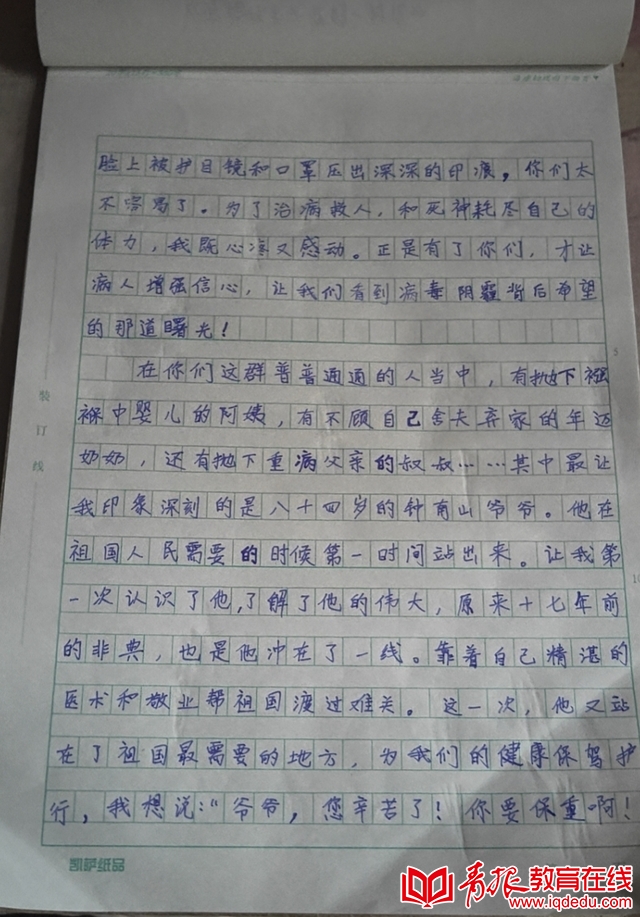 脸上被护目镜和口罩压出深深的印痕，你们太
不容易了。为了治病救人，和死神耗尽自己的
体力，我既心疼又感动。正是有了你们，才让
病人增强信心，让我们看到病毒阴霾背后希望
的那道曙光！
在你们这群普普通通的人当中，有抛下襁
褓中婴儿的阿姨，有不顾自己舍夫弃家的年迈
奶奶，还有抛下重病父亲的叔叔……其中最让
我印象深刻的是八十四岁的钟南山爷爷。他在
祖国人民需要的时候第一时间站出来。让我第
一次认识了他，了解了他的伟大，原来十七年前
的非典，也是他冲在了一线。靠着自己精湛的
医术和敬业帮祖国渡过难关。这一次，他又站
在了祖国最需要的地方，为我们的健康保驾护
行，我想说：“爷爷，您辛苦了！你要保重啊！
装
订
线
5
10
凯萨纸品
青报教育在线
www.iqdedu.com